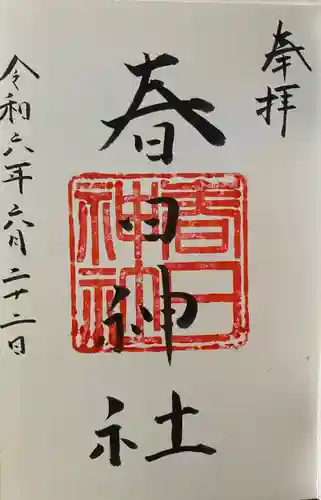 奉拝
春日神社
春日神社
令和六年六月二十二日